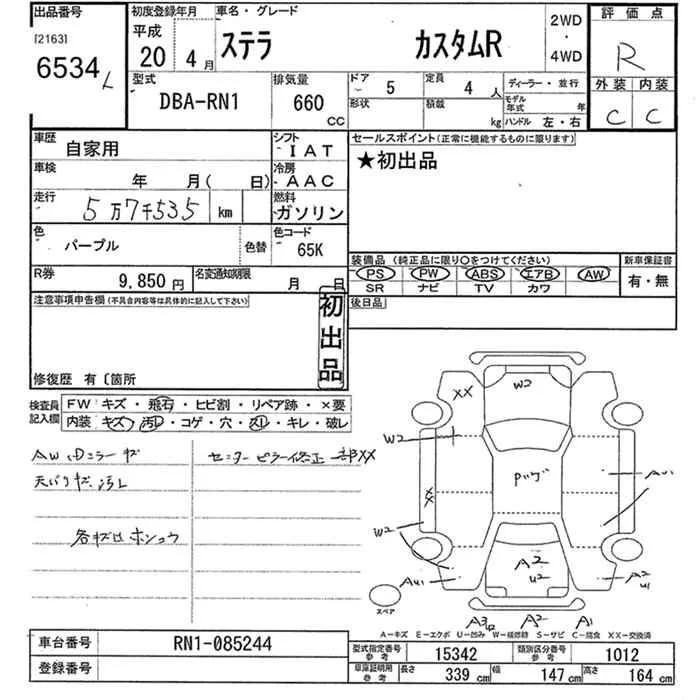 出品番号 初度登録年月 車名・グレード 2WD 評価点
[2163] 平成 ・
6534 20年 4月 ステラ カスタムR 4WD R
型式 排気量 ドア 定員 ディーラー・並行 外装 内装
DBA-RN1 660 CC 5 4人 モデル年式 年 C C
形状 積載 kg ハンドル 左・右
車歴 自家用 シフト IAT セールスポイント(正常に機能するものに限ります)
車検 年 月( 日) 冷房 AAC ★初出品
走行 5万7千535 km 燃料 ガソリン
色 パープル 色替 色コード 65K
装備品 (純正品に限り○をつけてください) 新車保証書
PS PW ABS エアB AW 有・無
SR ナビ TV カワ
R券 9,850円 名変通知期限 月 日 後日品
注意事項申告欄(不具合内容等は具体的に記入して下さい) 初出品
修復歴 有〔箇所
検査員記入欄 FW キズ・飛石・ヒビ割・リペア跡・×要
内装 キズ・汚レ・コゲ・穴・スレ・キレ・破レ
センターピラー修正 XX
天バリキズ、汚レ
XX W2
W2
XX
W2
A2
U2
AU1 A2
U1
スペア
A3 A2 A1
A-キズ E-エクボ U-凹み W-補修跡 S-サビ C-腐食 XX-交換済
車台番号 RN1-085244 型式指定番号 参考 15342 類別区分番号 参考 1012
登録番号 車庫証明用 参考 長さ 339 cm 幅 147 cm 高さ 164 cm